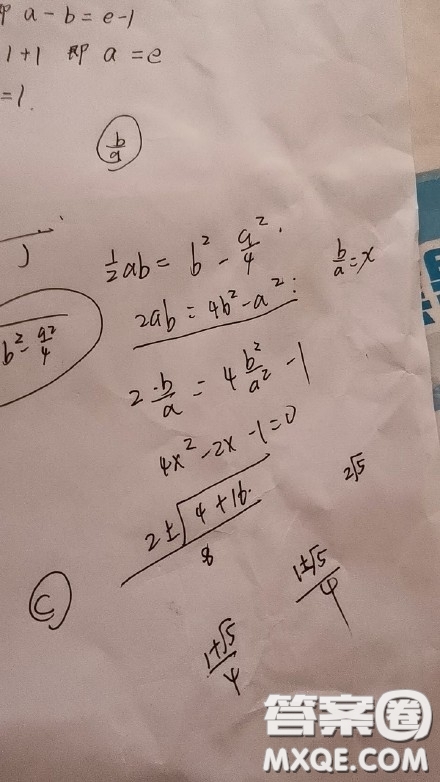 即 a - b = e - 1
1 + 1 即 a = e
= 1.
b/a
1/2 ab = b² - a²/4 .
b/a = x
2ab = 4b² - a² :
b² - a²/4
2 · b/a = 4 b²/a² - 1
4x² - 2x - 1 = 0
2√5
2 ± √(4 + 16) / 8
C
1 ± √5 / 4
1 + √5 / 4
答案圈
MXQE.COM